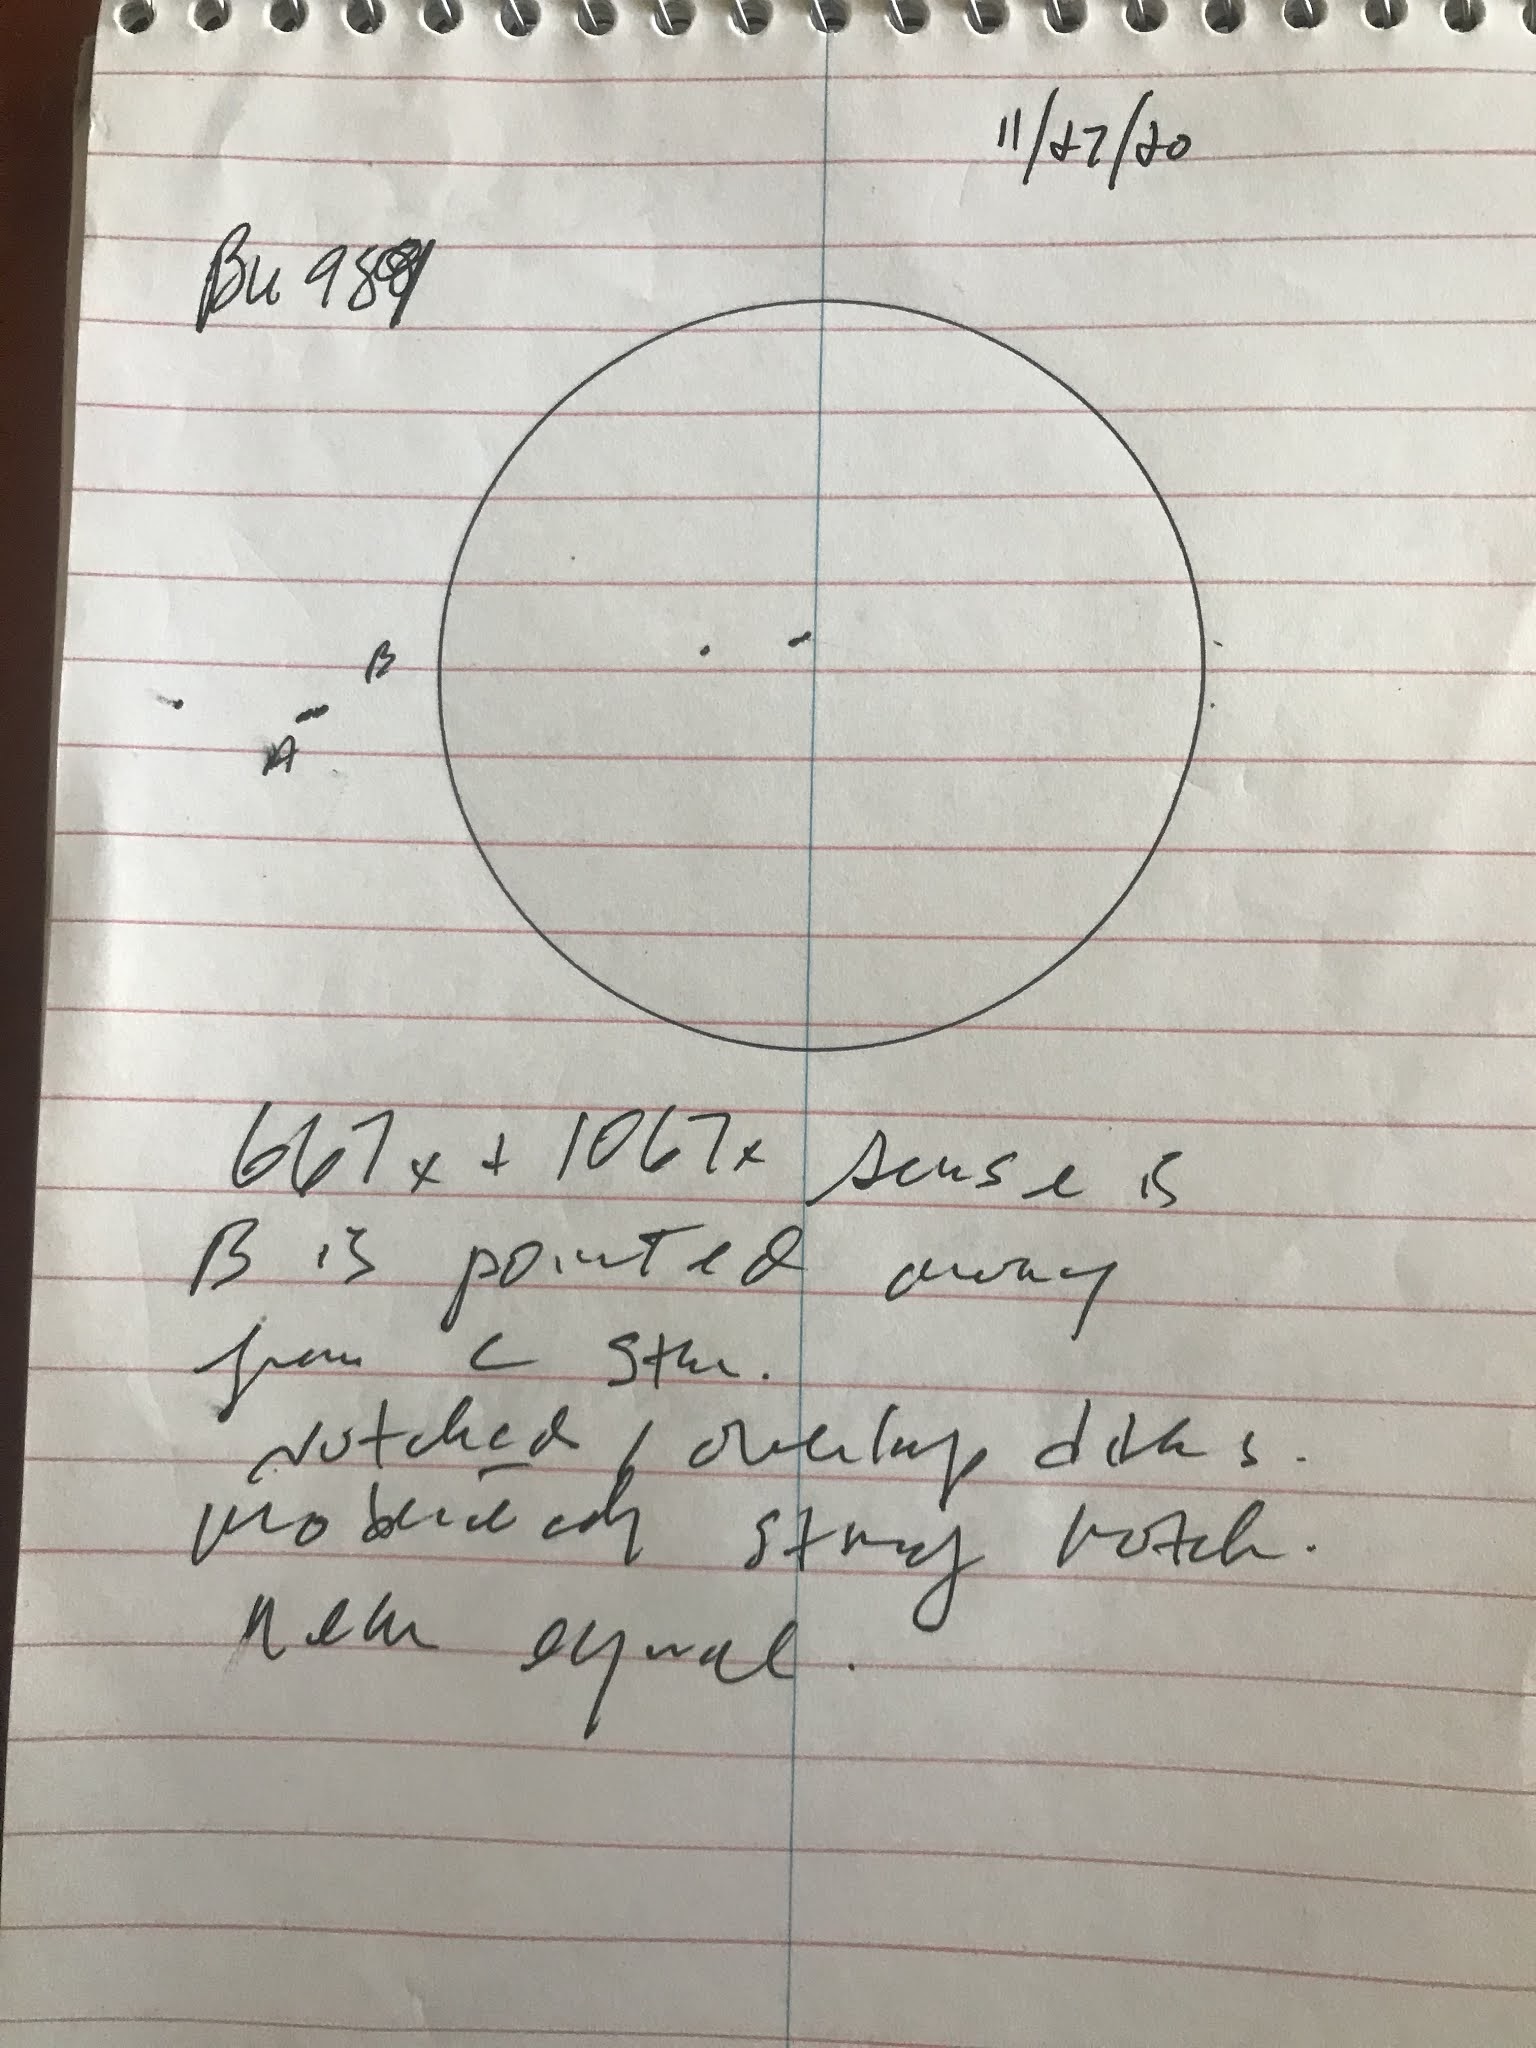 11/27/20
Bu 989
B
A
667x + 1067x sense is
B is pointed away
from C star.
Notched, overlap disks.
moderately strong notch.
Near equal.